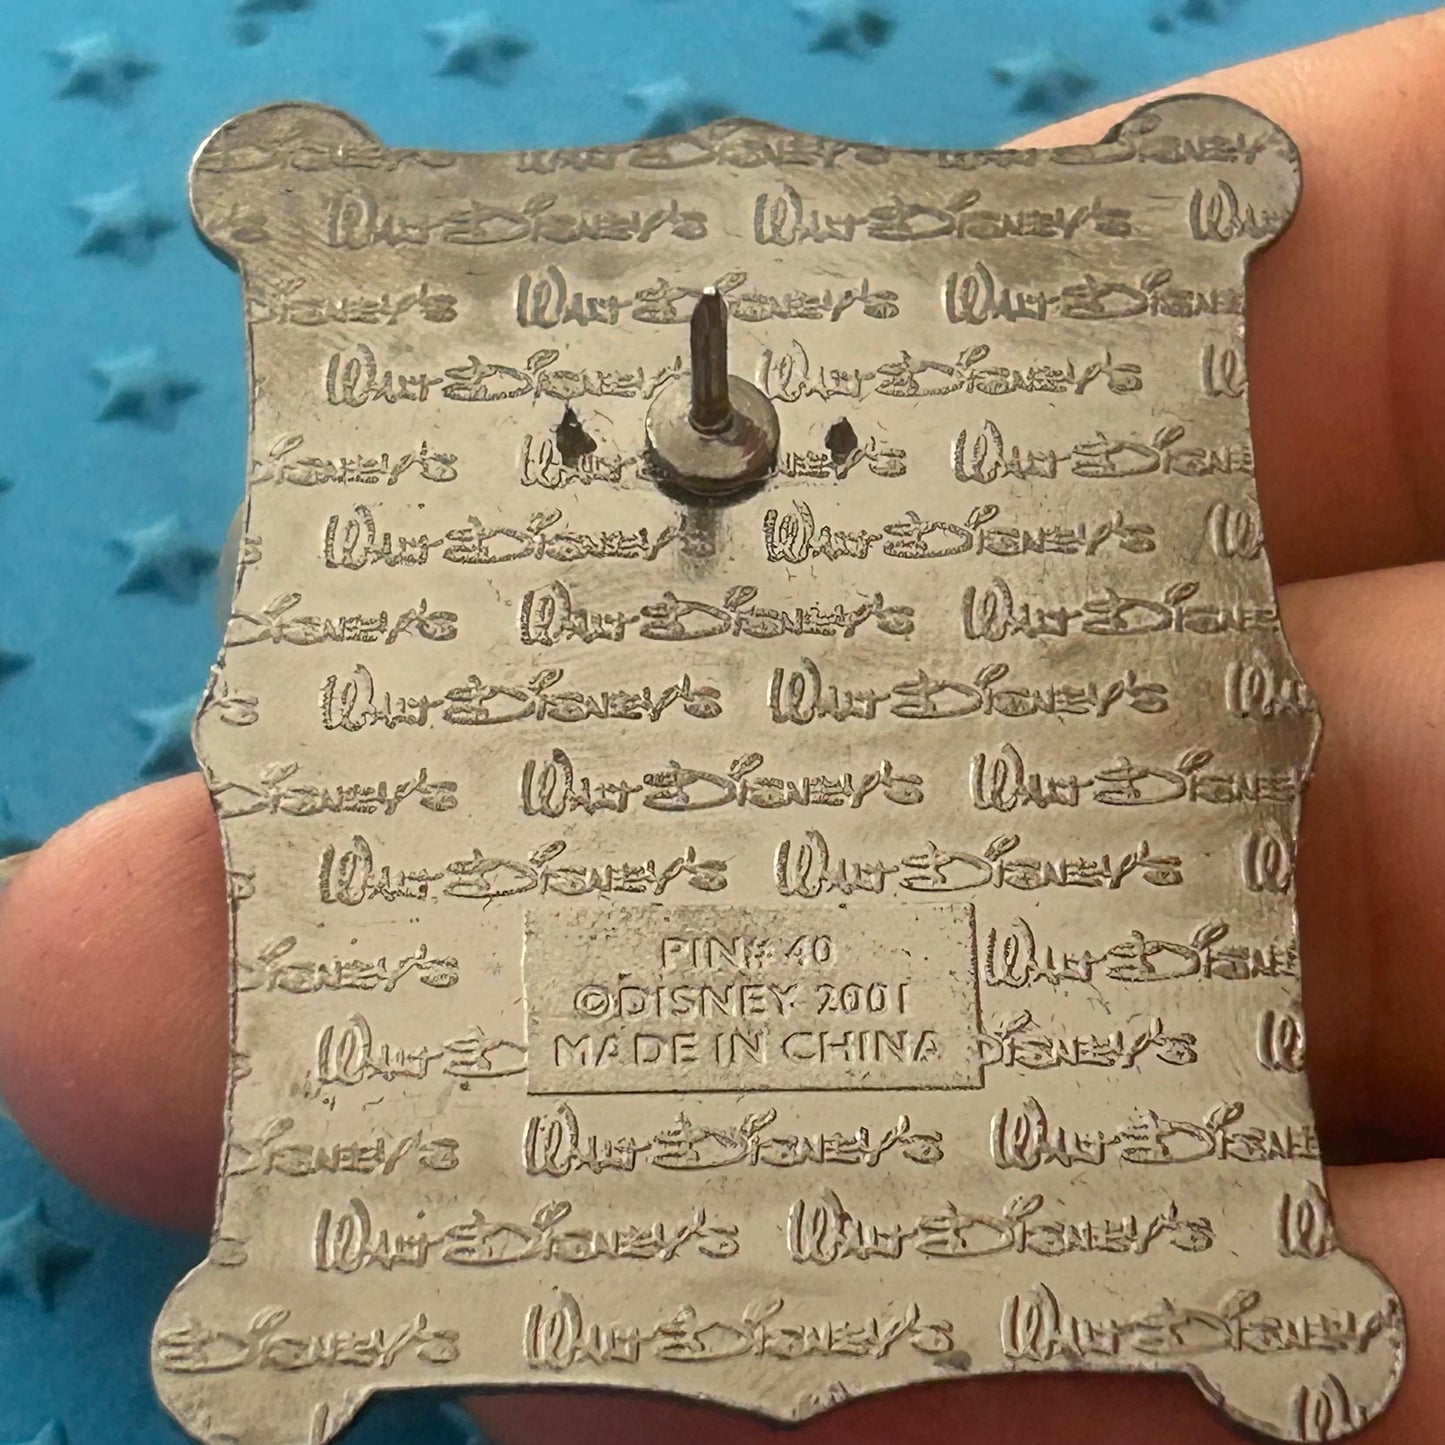 DISNEY'S WALT DISNEY'S WALT DISNEY
'S WALT DISNEY'S WALT DISNEY'S WAL
DISNEY'S WALT DISNEY'S WALT DISNE
WALT DISNEY'S WALT DISNEY'S W
DISNEY'S WALT NEY'S WALT DISNE
S WALT DISNEY'S WALT DISNEY'S W
DISNEY'S WALT DISNEY'S WALT DISNE
'S WALT DISNEY'S WALT DISNEY'S WA
DISNEY'S WALT DISNEY'S WALT DISNE
S WALT DISNEY'S WALT DISNEY'S W
DISNEY'S PIN# 40 WALT DISNE
©DISNEY 2001
WALT D MADE IN CHINA DISNEY'S W
DISNEY'S WALT DISNEY'S WALT DISNE
S WALT DISNEY'S WALT DISNEY'S W
DISNEY'S WALT DISNEY'S WALT DISNEY
W